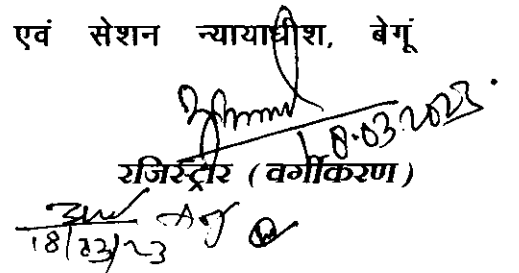 एवं सेशन न्यायाधीश, बेगूं
18.03.2023.
रजिस्ट्रार (वर्गीकरण)
18/03/23